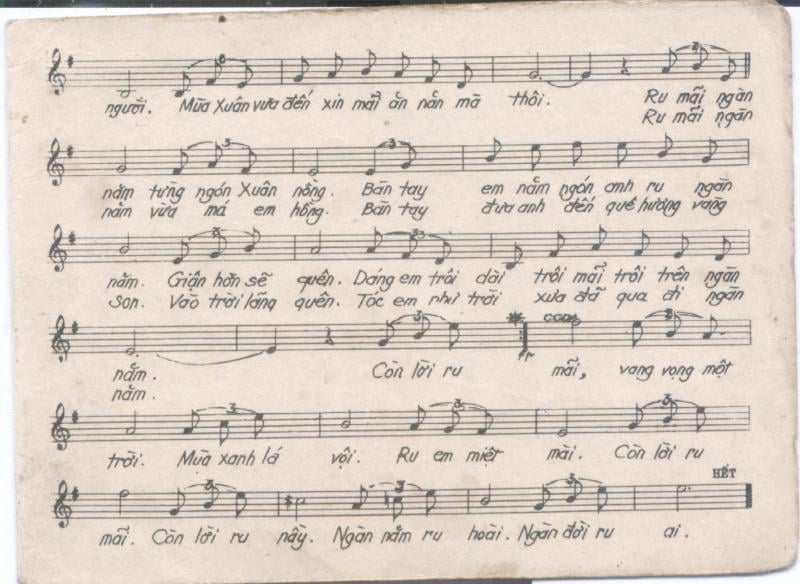 người. Mùa Xuân vừa đến xin mãi ăn năn mà thôi. Ru mãi ngàn
Ru mãi ngàn
năm từng ngón Xuân nồng. Bàn tay em năm ngón anh ru ngàn
năm vừa má em hồng. Bàn tay đưa anh đến quê hương vàng
năm. Giận hờn sẽ quên. Dáng em trôi dài trôi mãi trôi trên ngàn
son. Vào trời lãng quên. Tóc em như trời xưa đã qua đi ngàn
CODA
năm. Còn lời ru mãi, vang vọng một
năm.
trời. Mùa xanh lá vội. Ru em miệt mài. Còn lời ru
HẾT
mãi. Còn lời ru nầy. Ngàn năm ru hoài. Ngàn đời ru ai.